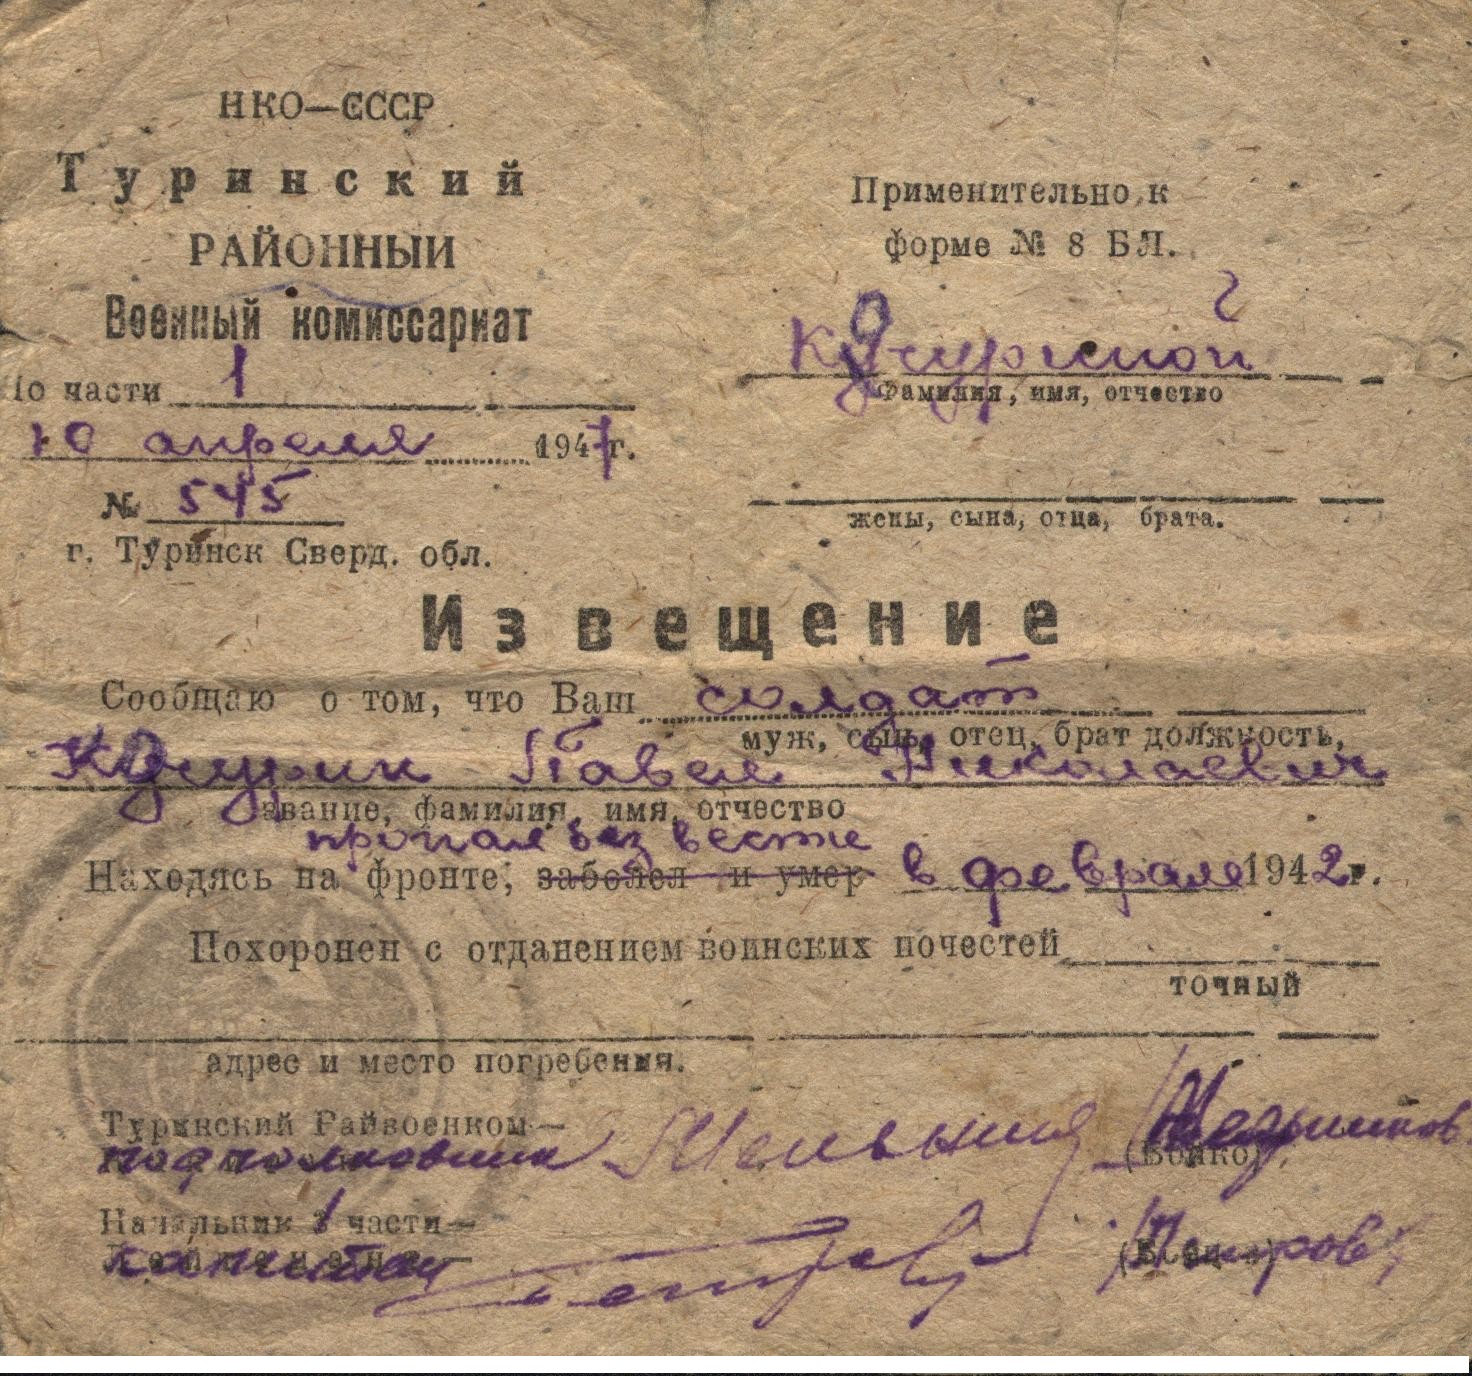 НКО—СССР
Туринский
РАЙОННЫЙ
Военный комиссариат
По части 1
10 апреля 1947 г.
№ 545
г. Туринск Сверд. обл.
Применительно к
форме № 8 БЛ.
Фамилия, имя, отчество
жены, сына, отца, брата.
Извещение
Сообщаю о том, что Ваш солдат
муж, сын, отец, брат должность,
Павел Николаевич
звание, фамилия, имя, отчество
пропал без вести
Находясь на фронте, заболел и умер в феврале 1942 г.
Похоронен с отданием воинских почестей
точный
адрес и место погребения.
Туринский Райвоенком—
подполковник
(Бойко)
Начальник 1 части—
капитан
Петров (Петров)